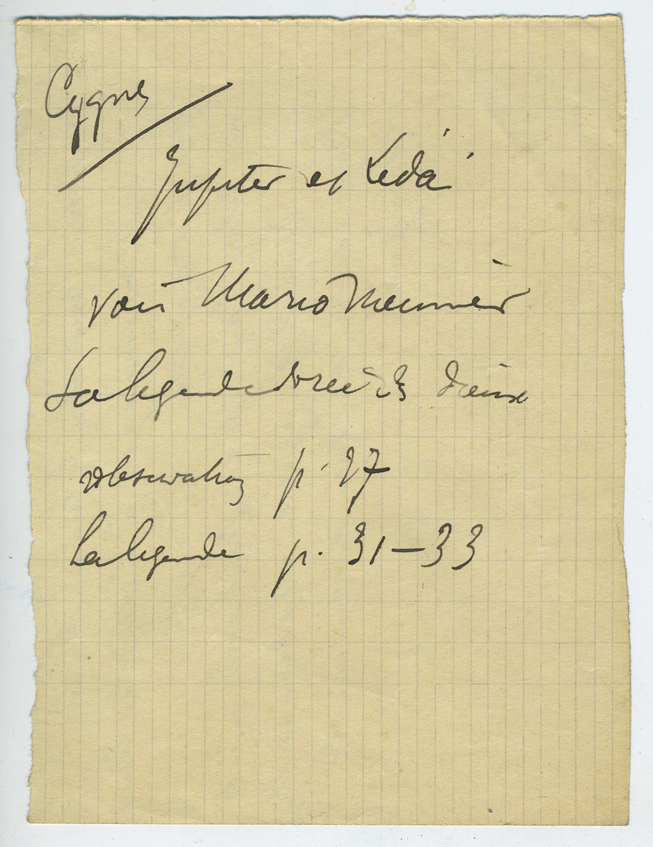 Cygnes
Jupiter et Leda
voir Mario Meunier
La legende dorée des dieux
observations p. 27
La legende p. 31-33